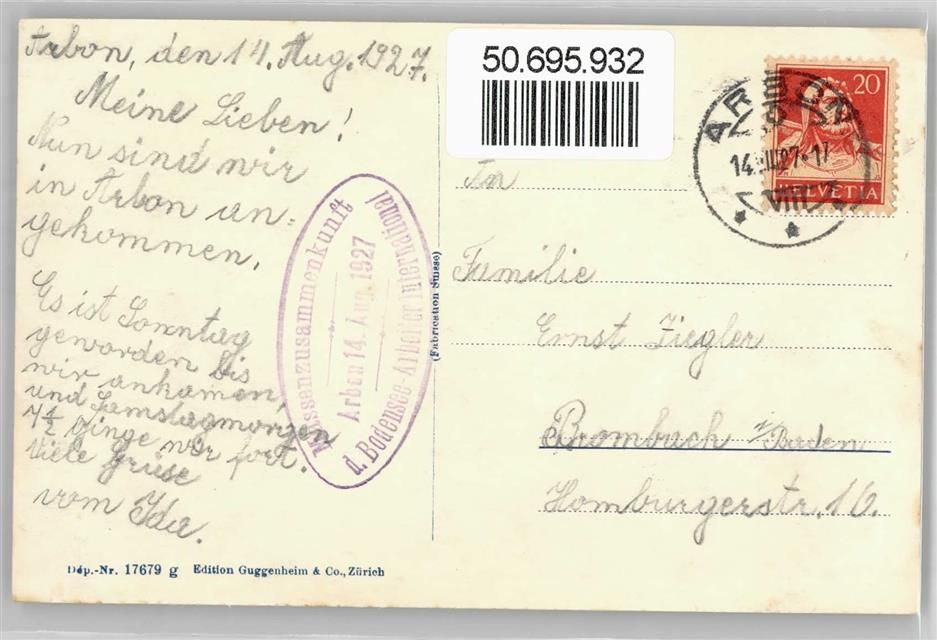 Arbon, den 14. Aug. 1927.
Meine Lieben!
Nun sind wir
in Arbon an-
gekommen.
Es ist Sonntag
geworden bis
wir ankamen
und Samstagmorgen
7½ ginge wir fort.
Viele Grüse
vom Ida.
Massenzusammenkunft
Arbon 14. Aug. 1927
d. Bodensee-Arbeiter International
Dép.-Nr. 17679 g Edition Guggenheim & Co., Zürich
(Fabrication Suisse)
50.695.932
20
HELVETIA
ARBON
VIII
An
Familie
Ernst Ziegler
Brombach i/Baden
Homburgerstr. 16.